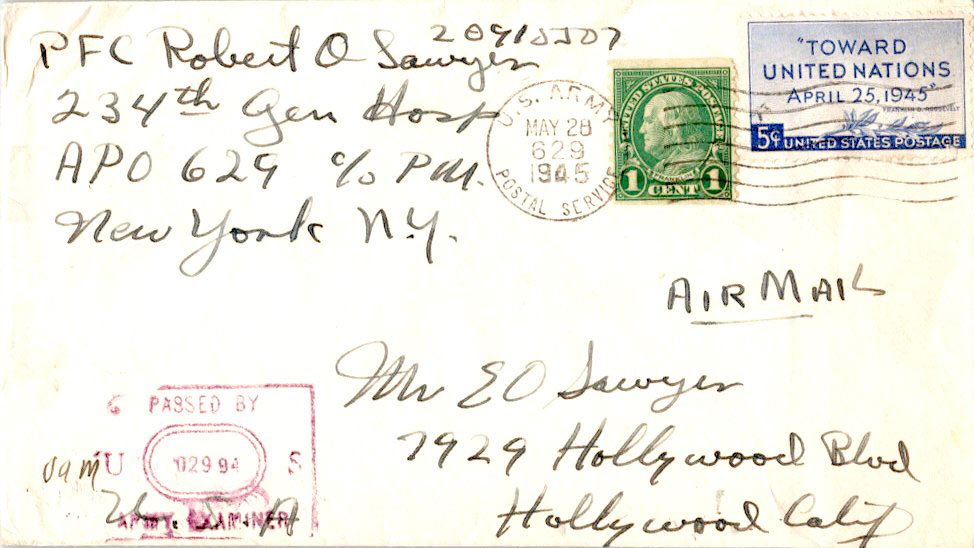 PFC Robert O Sawyer 20915507
234th Gen Hosp
APO 629 c/o P.M.
New York N.Y.
U.S. ARMY
MAY 28
629
1945
POSTAL SERVICE
UNITED STATES POSTAGE
FRANKLIN
1 CENT 1
"TOWARD
UNITED NATIONS
APRIL 25, 1945"
FRANKLIN D. ROOSEVELT
5¢ UNITED STATES POSTAGE
AIR MAIL
Mr EO Sawyer
7929 Hollywood Blvd
Hollywood Calif
PASSED BY
U 02994 S
ARMY EXAMINER